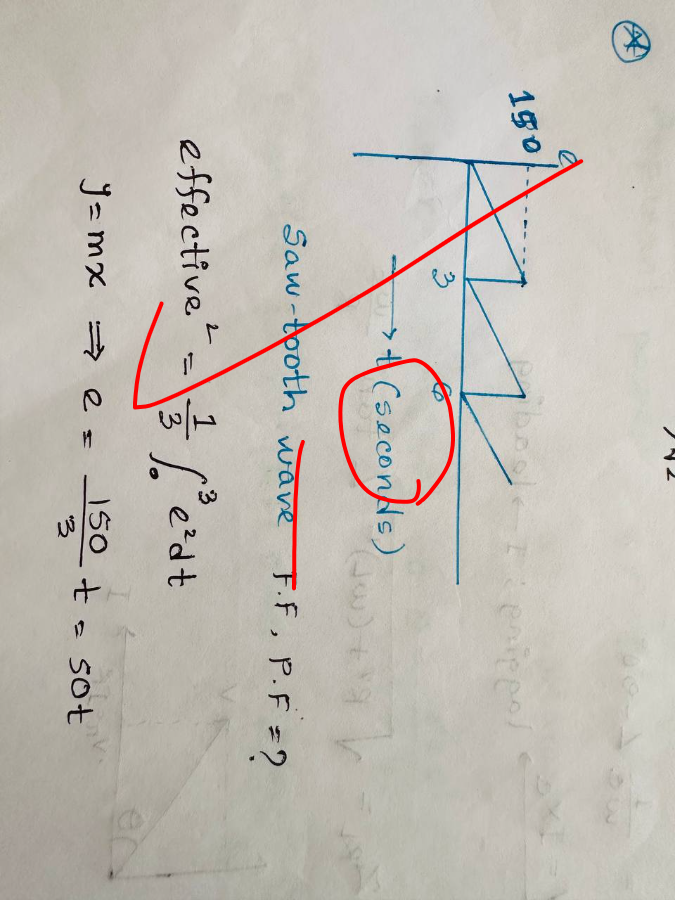 e
150
3 6
→ t (seconds)
Saw-tooth wave F.F, P.F =?
effective² = 1/3 ∫₀³ e²dt
y=mx ⇒ e = 150/3 t = 50t